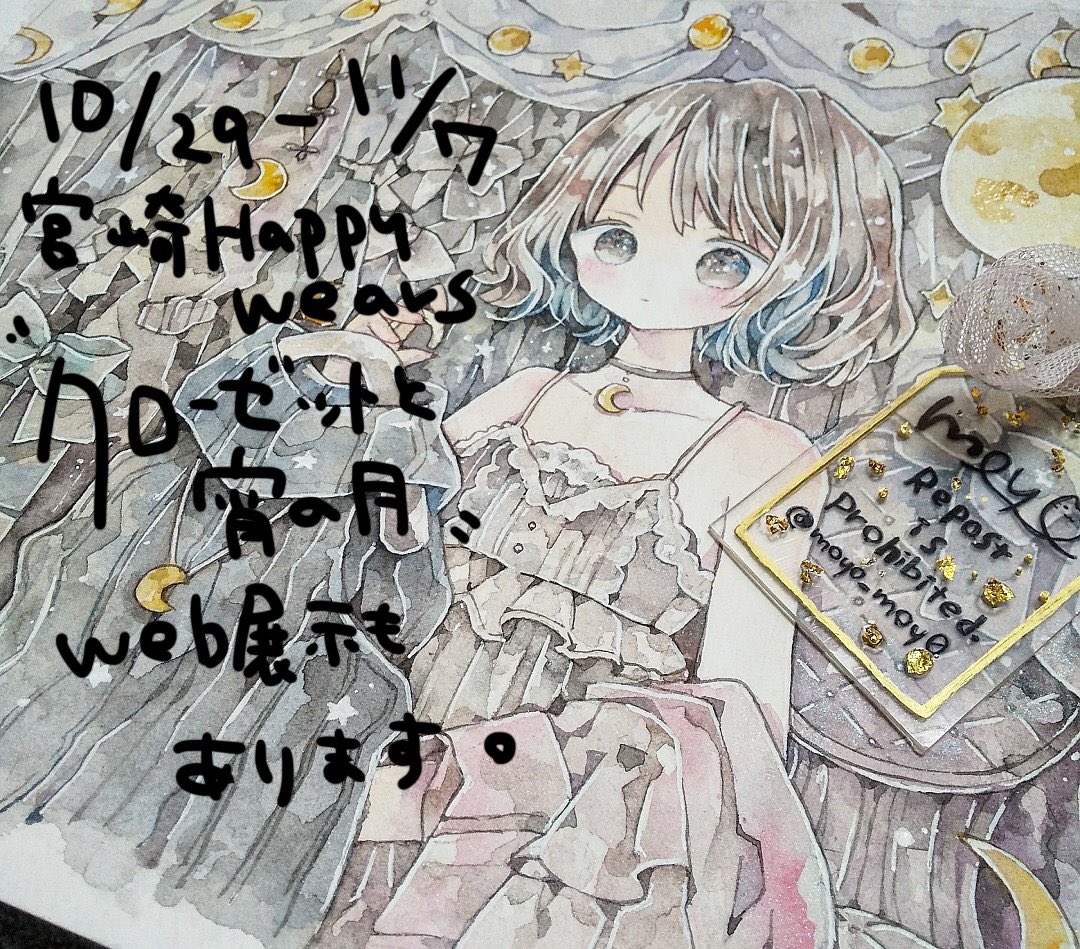 10/29-11/7
宮崎Happy
wears
"クローゼットと
宵の月"
web展示も
あります。
moy
Repost
is
Prohibited.
@moyo_moy0